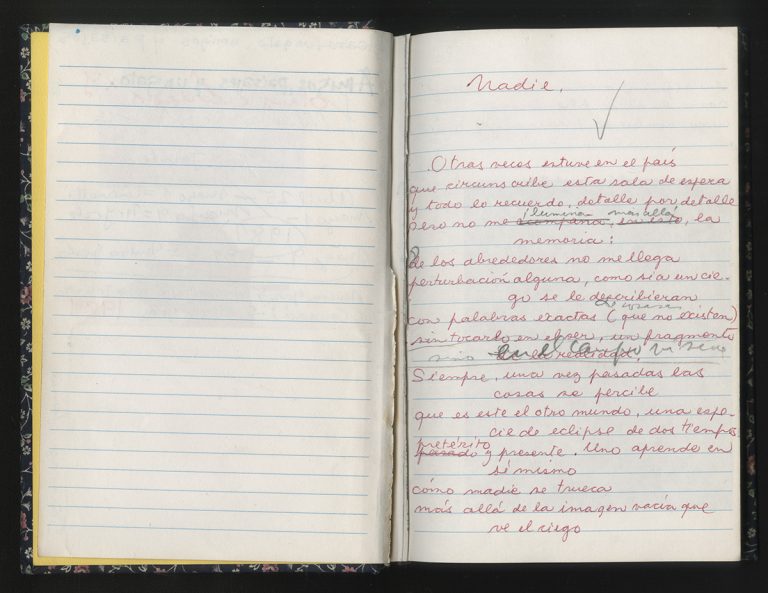 Nadie.
Otras veces estuve en el país
que circunscribe esta sala de espera
y todo lo recuerdo, detalle por detalle
ilumina más allá
pero no me acompaña, en esto, la
memoria:
de los alrededores no me llega
perturbación alguna, como si a un cie-
go se le describieran
con palabras exactas (que no existen)
sin tocarlo en el ser, un fragmento
de la realidad.
Siempre, una vez pasadas las
cosas se percibe
que es este el otro mundo, una espe-
cie de eclipse de dos tiempos
pretérito
pasado y presente. Uno aprende en
sí mismo
cómo nadie se trueca
más allá de la imagen vacía que
ve el ciego